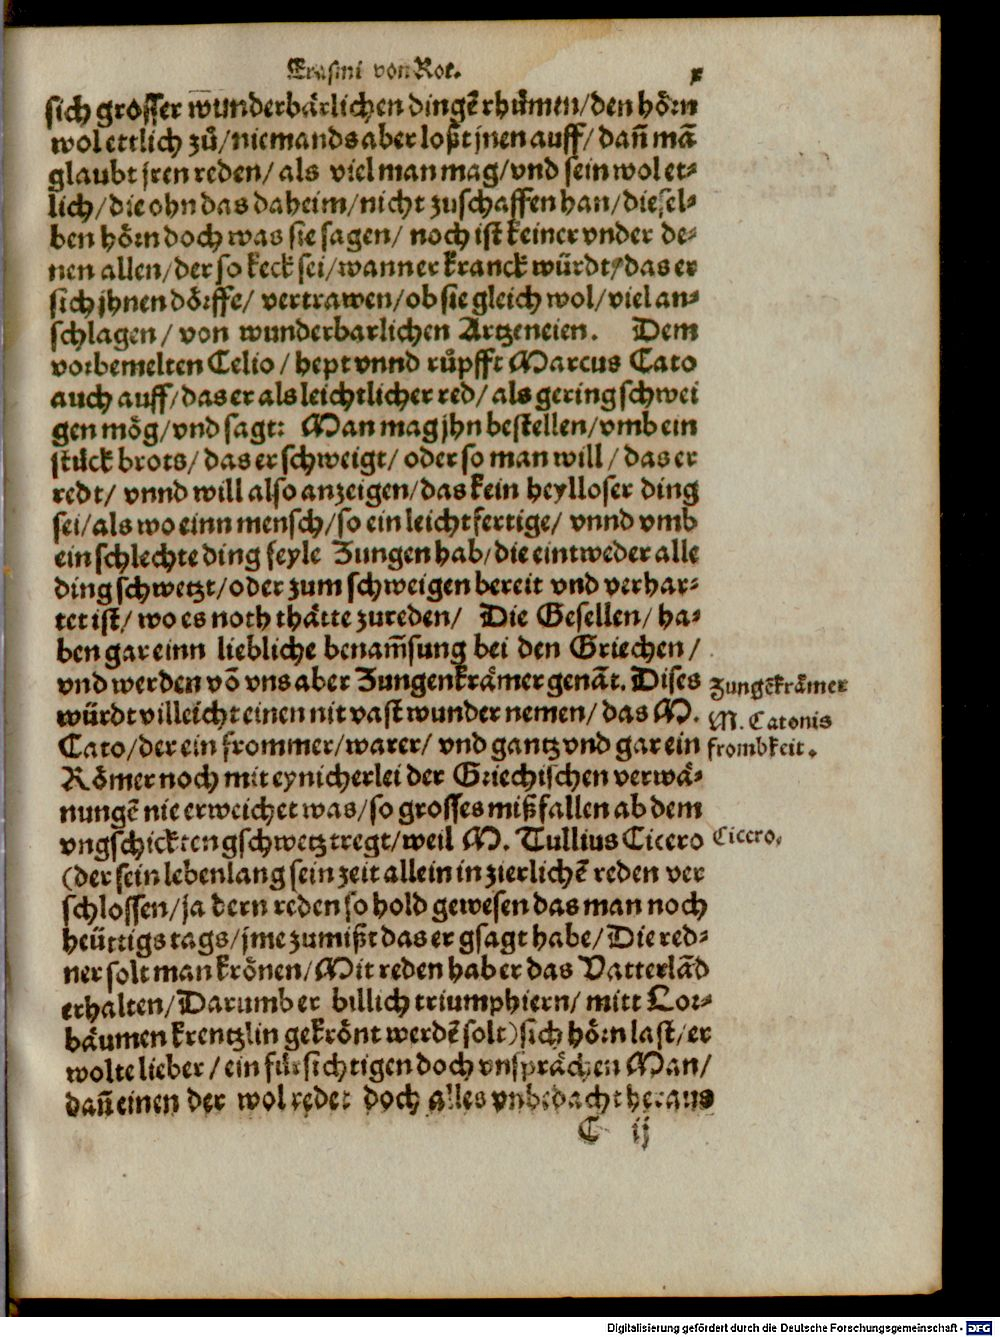 Erasmi von Rot. x
sich grosser wunderbärlichen dingẽ rhümen/den hörn
wol ettlich zů/niemands aber loßt jnen auff/ dañ mã
glaubt jren reden/ als viel man mag/vnd sein wol et-
lich/die ohn das daheim/nicht zuschaffen han/diesel-
ben hörn doch was sie sagen/ noch ist keiner vnder de-
nen allen/der so keck sei/wann er kranck würdt/das er
sich jhnen dörffe/ vertrawen/ob sie gleich wol/viel an-
schlagen/ von wunderbarlichen Artzeneien. Dem
vorbemelten Celio/ hept vnnd rüpfft Marcus Cato
auch auff/das er als leichtlicher red/als gering schwei
gen mög/vnd sagt: Man mag jhn bestellen/vmb ein
stück brots/das er schweigt/ oder so man will/das er
redt/ vnnd will also anzeigen/das kein heylloser ding
sei/als wo einn mensch/so ein leichtfertige/ vnnd vmb
ein schlechte ding feyle Zungen hab/die eintweder alle
ding schwetzt/oder zum schweigen bereit vnd verhar-
tet ist/ wo es noth thätte zureden/ Die Gesellen/ ha-
ben gar einn liebliche benam̃sung bei den Griechen/
vnd werden võ vns aber Zungenkrämer genãt. Dises
Zungẽkrämer
würdt villeicht einen nit vast wunder nemen/ das M.
M. Catonis
Cato/der ein frommer/warer/ vnd gantz vnd gar ein
frombkeit.
Römer noch mit eynicherlei der Griechischen verwä-
nungẽ nie erweichet was/so grosses mißfallen ab dem
vngschickten gschwetz tregt/weil M. Tullius Cicero
Cicero.
(der sein lebenlang sein zeit allein in zierlichẽ reden ver
schlossen/ja dern reden so hold gewesen das man noch
heüttigs tags/jme zumißt das er gsagt habe/Die red-
ner solt man krönen/Mit reden hab er das Vatterlãd
erhalten/Darumb er billich triumphiern/ mitt Lor-
bäumen krentzlin gekrönt werdẽ solt)sich hörn last/er
wolte lieber/ ein fürsichtigen doch vnsprächen Man/
dañ einen der wol redet doch alles vnbedacht heraus
C ij
Digitalisierung gefördert durch die Deutsche Forschungsgemeinschaft - DFG